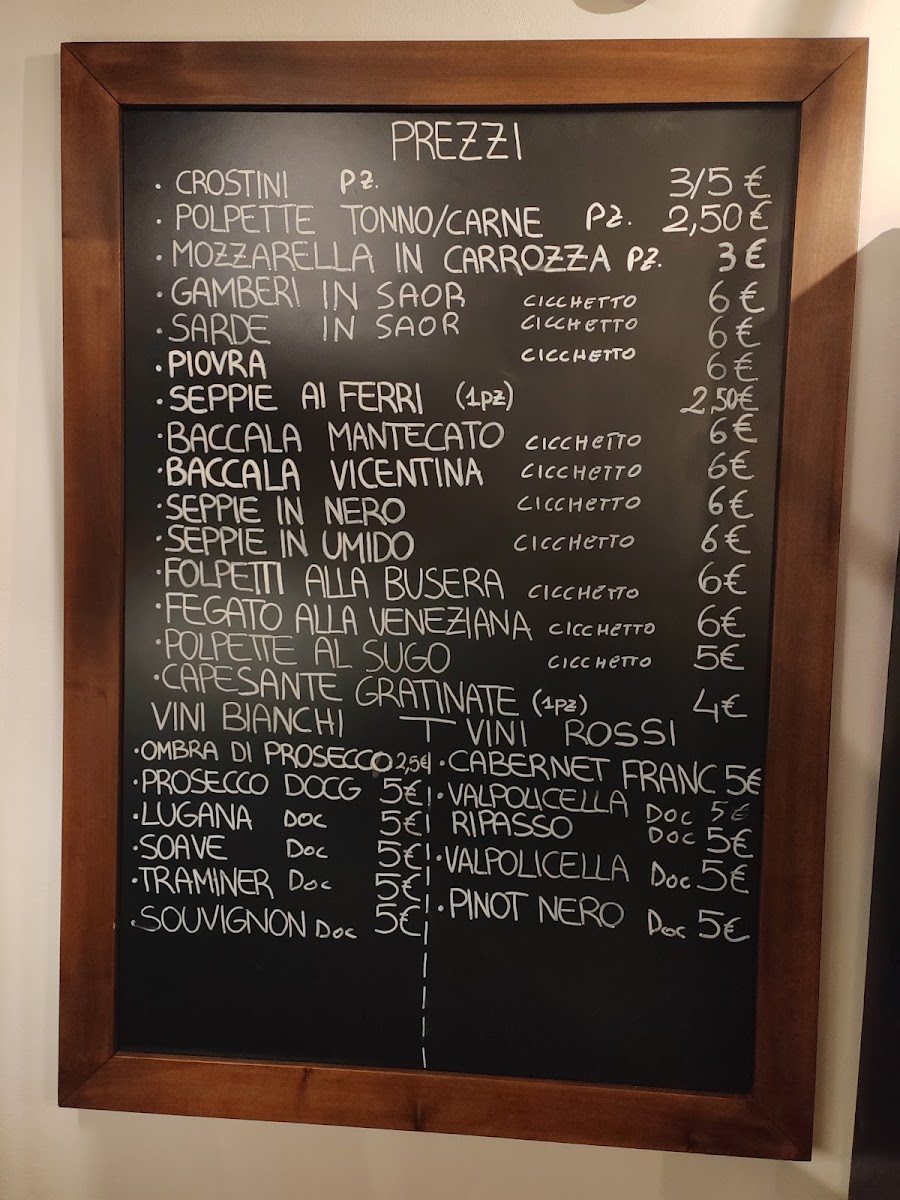 PREZZI
· CROSTINI PZ. 3/5 €
· POLPETTE TONNO/CARNE PZ. 2,50 €
· MOZZARELLA IN CARROZZA PZ. 3 €
· GAMBERI IN SAOR CICCHETTO 6 €
· SARDE IN SAOR CICCHETTO 6 €
· PIOVRA CICCHETTO 6 €
· SEPPIE AI FERRI (1PZ) 2,50€
· BACCALA MANTECATO CICCHETTO 6€
· BACCALA VICENTINA CICCHETTO 6€
· SEPPIE IN NERO CICCHETTO 6€
· SEPPIE IN UMIDO CICCHETTO 6€
· FOLPETTI ALLA BUSERA CICCHETTO 6€
· FEGATO ALLA VENEZIANA CICCHETTO 6€
· POLPETTE AL SUGO CICCHETTO 5€
· CAPESANTE GRATINATE (1PZ) 4€
VINI BIANCHI
· OMBRA DI PROSECCO 2,5€
· PROSECCO DOCG 5€
· LUGANA DOC 5€
· SOAVE DOC 5€
· TRAMINER DOC 5€
· SOUVIGNON DOC 5€
VINI ROSSI
· CABERNET FRANC 5€
· VALPOLICELLA DOC 5€
RIPASSO DOC 5€
· VALPOLICELLA DOC 5€
· PINOT NERO DOC 5€